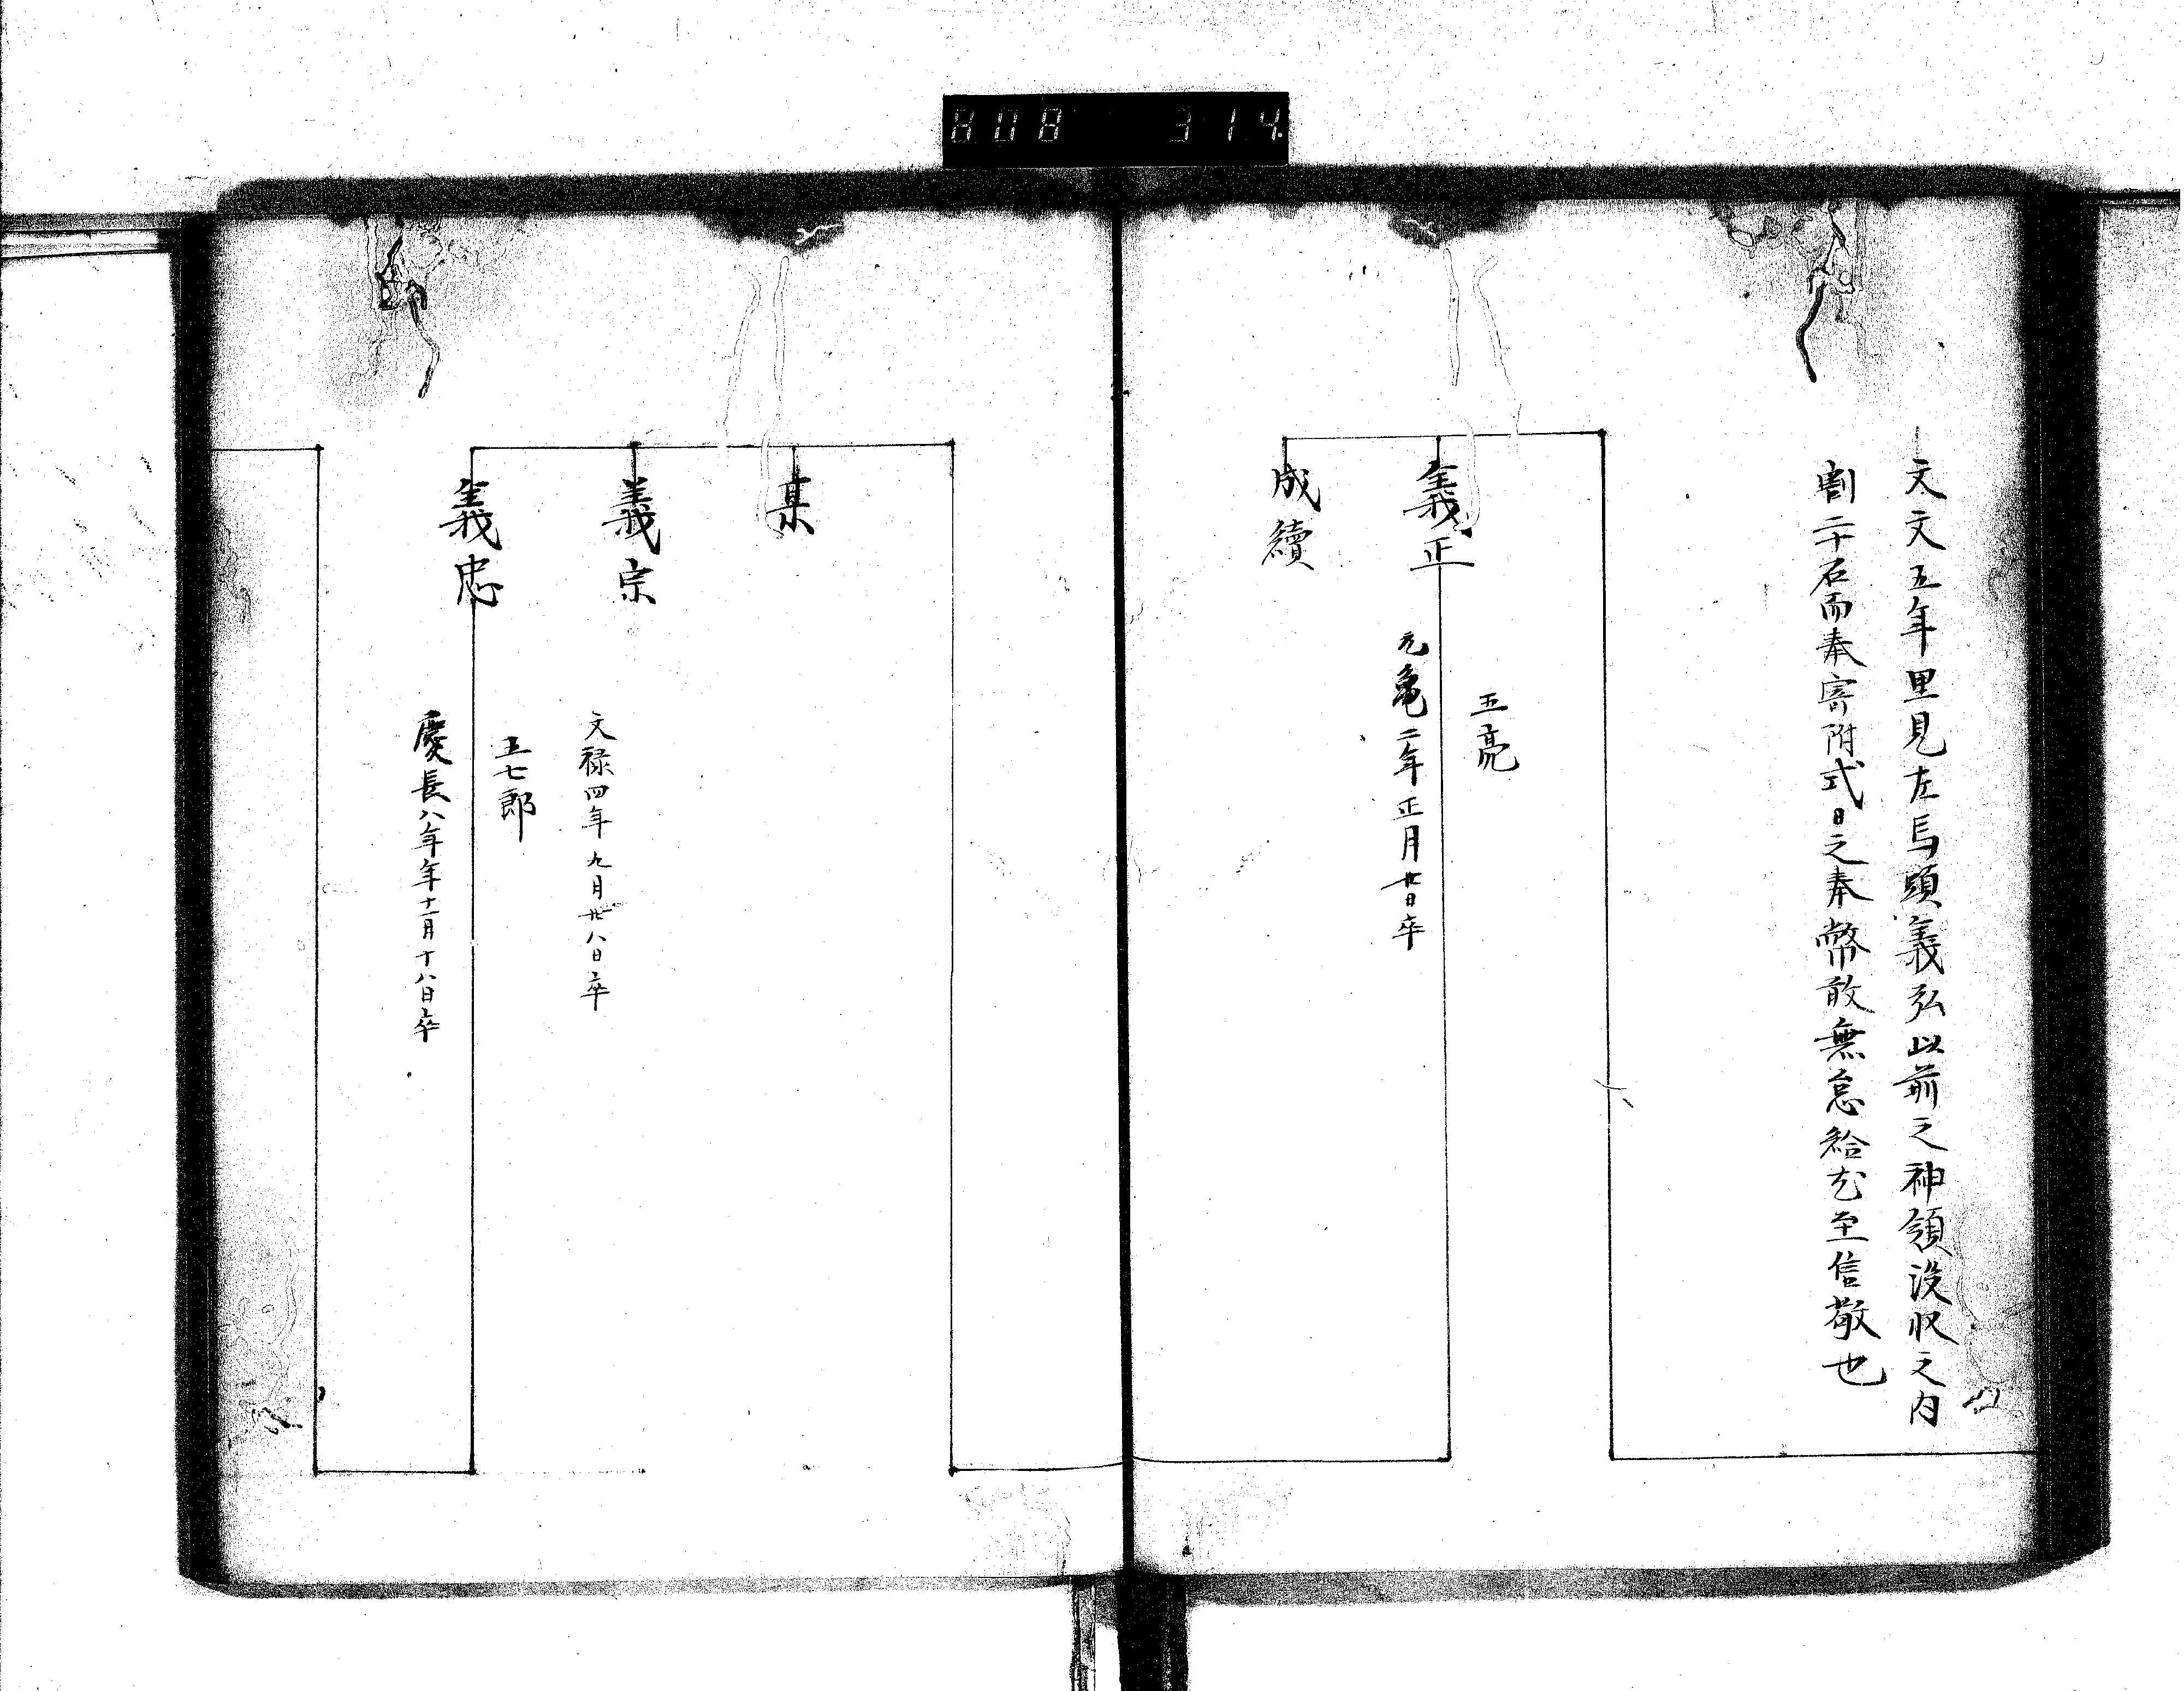 808 314
文文五年里見左馬頭義弘以前之神領没収之内
割二十石而奉寄附式日之奉幣敢無怠給尤至信敬也
義正
五亮
元亀二年正月廿日卒
成續
某
義宗
文禄四年九月廿八日卒
義忠
五七郎
慶長八年年十一月十八日卒